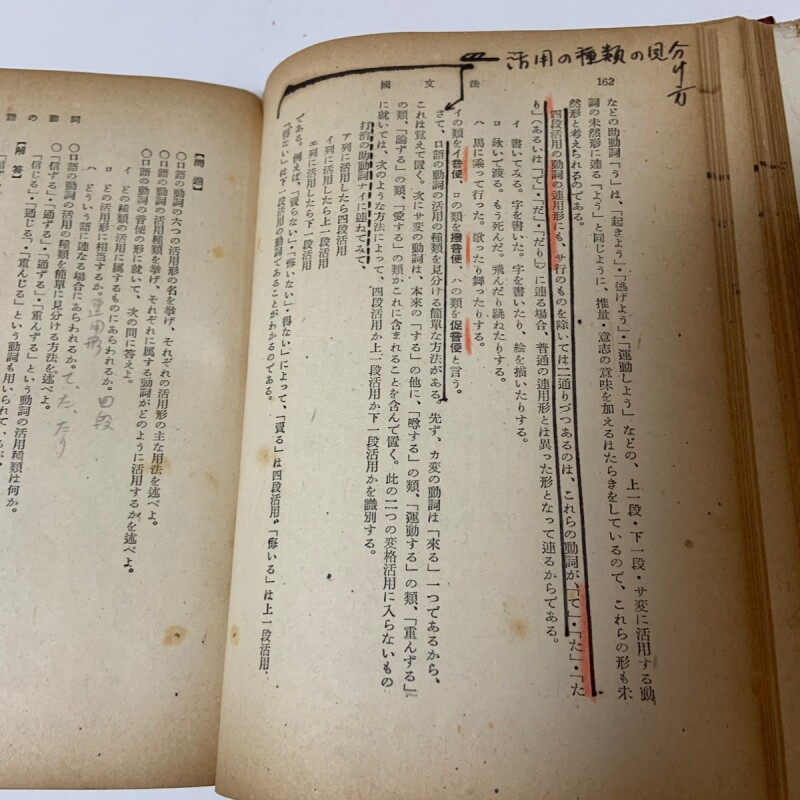 活用の種類の見分け方
國文法
162
などの助動詞「う」は、「起きよう」・「逃げよう」・「運動しよう」などの、上一段・下一段・サ変に活用する動
詞の未然形に連る「よう」と同じように、推量・意志の意味を加えるはたらきをしているので、これらの形も未
然形と考えられるのである。
四段活用の動詞の連用形にも、サ行のものを除いては二通りづつあるのは、これらの動詞が、「て」・「た」・「た
り」(あるいは「で」・「だ」・「だり」)に連る場合、普通の連用形とは異った形となって連るからである。
イ 書いてみる。字を書いた。字を書いたり、絵を描いたりする。
ロ 泳いで渡る。もう死んだ。飛んだり跳ねたりする。
ハ 馬に乗って行った。歌ったり舞ったりする。
イの類をイ音便、ロの類を撥音便、ハの類を促音便と言う。
さて、口語の動詞の活用の種類を見分ける簡単な方法がある。先ず、カ変の動詞は「來る」一つであるから、
これは覚えて置く。次にサ変の動詞は、本来の「する」の他に、「噂する」の類、「運動する」の類、「重んずる」
の類、「論ずる」の類、「愛する」の類がこれに含まれることを含んで置く。此の二つの変格活用に入らないもの
に就いては、次のような方法によって、四段活用か上一段活用か下一段活用かを識別する。
打消の助動詞ナイに連ねてみて、
ア列に活用したら四段活用
イ列に活用したら上一段活用
エ列に活用したら下一段活用
である。例えば、「賣らない」・「悔いない」・「得ない」によって、「賣る」は四段活用、「悔いる」は上一段活用、
「得ない」は下一段活用の動詞であることがわかるのである。
【問題】
○口語の動詞の六つの活用形の名を挙げ、それぞれの活用形の主な用法を述べよ。
○口語の動詞の活用種類を挙げ、それぞれに属する動詞がどのように活用するかを述べよ。
○口語の動詞の音便の形に就いて、次の問に答えよ。
イ どの種類の活用に属するものにあらわれるか。四段
ロ どの活用形に相当するか。連用形
ハ どういう語に連なる場合にあらわれるか。て、た、たり
○口語の動詞の活用の種類を簡単に見分ける方法を述べよ。
○「信ずる」・「通ずる」・「重んずる」という動詞の活用種類は何か。
【解答】
「信じる」・「通じる」・「重んじる」という動詞も用いられて